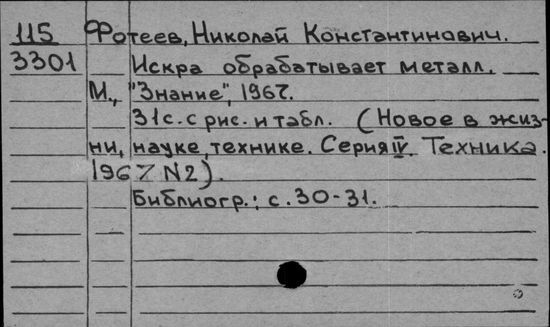 115 Фотеев, Николай Константинович.
3301 Искра обрабатывает металл.
М., "Знание", 1967.
31с. с рис. и табл. (Новое в жиз-
ни, науке, технике. Серия IV. Техника.
1967 N2).
Библиогр.: с. 30-31.